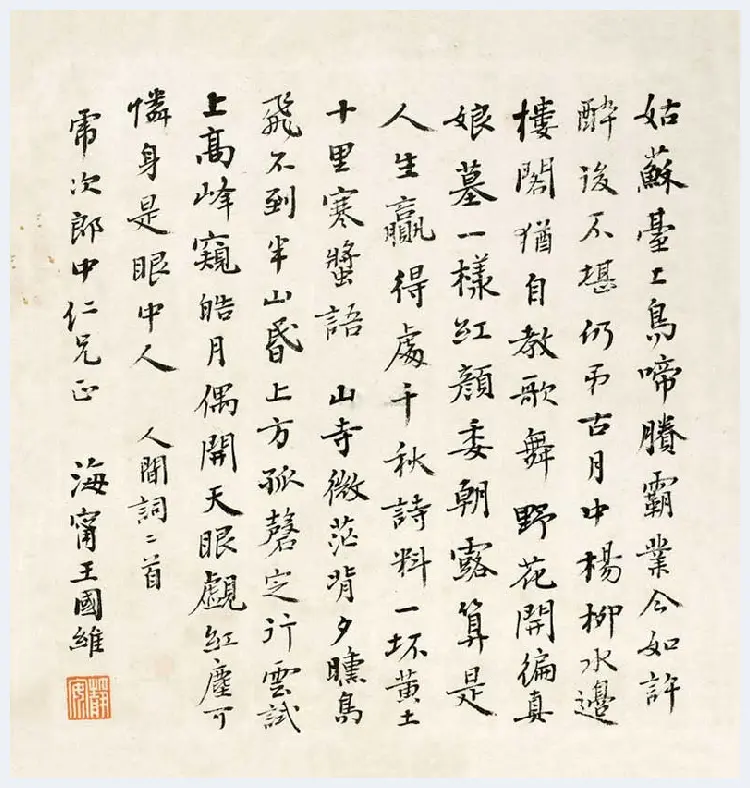 姑蘇臺上烏啼賸霸業今如許
醉後不堪仍弔古月中楊柳水邊
樓閣猶自教歌舞 野花開徧真
娘墓一樣紅顏委朝露算是
人生贏得處千秋詩料一坏黃土
十里寒螿語 山寺微茫背夕曛鳥
飛不到半山昏上方孤磬定行雲試
上高峰窺皓月偶開天眼覷紅塵可
憐身是眼中人 人間詞二首
次郎中仁兄正 海甯王國維
靜安